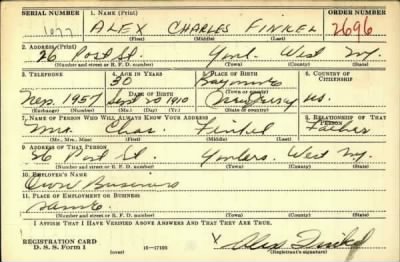 SERIAL NUMBER 1. NAME (Print) ORDER NUMBER
1077 ALEX CHARLES FINKEL 2696
(First) (Middle) (Last)
2. ADDRESS (Print)
26 Post St. Yonk. West NY.
(Number and street or R. F. D. number) (Town) (County) (State)
3. TELEPHONE 4. AGE IN YEARS 5. PLACE OF BIRTH 6. COUNTRY OF CITIZENSHIP
30 Bayonne
DATE OF BIRTH
Nep. 1957 Sept 20 1910 New Jersey U.S.
(Exchange) (Number) (Mo.) (Day) (Yr.) (State or country)
7. NAME OF PERSON WHO WILL ALWAYS KNOW YOUR ADDRESS 8. RELATIONSHIP OF THAT PERSON
Chas. Finkel Father
(Mr., Mrs., Miss) (First) (Middle) (Last)
9. ADDRESS OF THAT PERSON
26 Post St. Yonkers West NY.
(Number and street or R. F. D. number) (Town) (County) (State)
10. EMPLOYER'S NAME
Own Business
11. PLACE OF EMPLOYMENT OR BUSINESS
Same
(Number and street or R. F. D. number) (Town) (County) (State)
I AFFIRM THAT I HAVE VERIFIED ABOVE ANSWERS AND THAT THEY ARE TRUE.
REGISTRATION CARD
D. S. S. Form 1 (over) 16—17105 X Alex Finkel
(Registrant's signature)